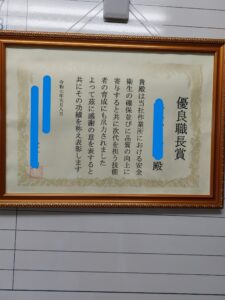 優良職長賞
殿
貴殿は当社作業所における安全
衛生の確保並びに品質の向上に
寄与すると共に次代を担う技能
者の育成にも尽力されました
よって茲に感謝の意を表すると
共にその功績を称え表彰します